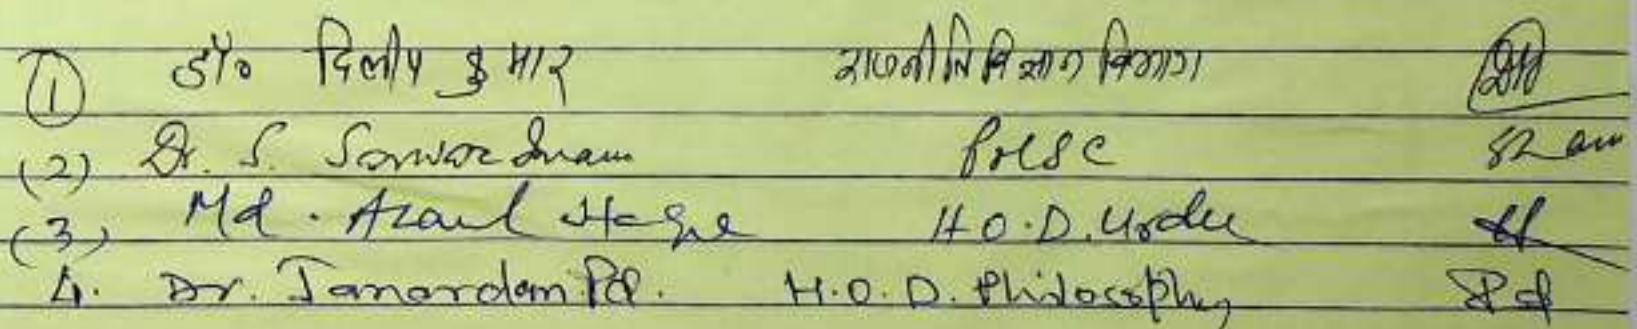 ① डॉ० दिलीप कुमार राजनीति विज्ञान विभाग
(2) Dr. S. Sarwar Imam Pol Sc
(3) Md. Azaul Haque H.O.D. Urdu
4. Dr. Janardan Pd. H.O.D. Philosophy Pd